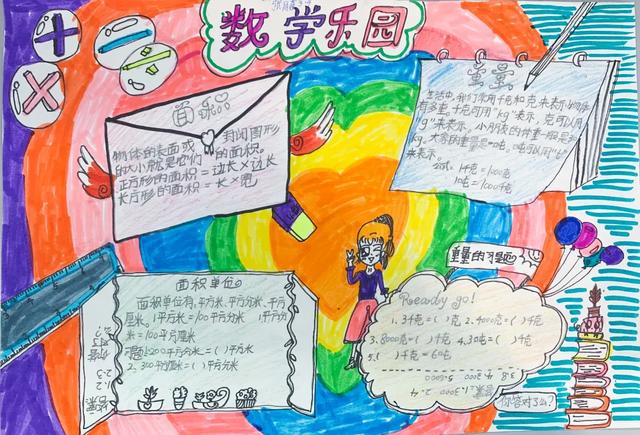 数学乐园
面积
物体的表面或封闭图形
的大小就是它们的面积。
正方形的面积=边长×边长
长方形的面积=长×宽
重量
生活中,我们常用千克和克来表示物体
有多重,千克可用"kg"表示,克可以用
"g"来表示。
来表示。
1千克=1000克
1吨=1000千克
面积单位
面积单位有,平方米、平方分米、平方
厘米。1平方米=100平方分米 1平方分
米=100平方厘米
200平方分米=( )平方米
2、300平方厘米=( )平方分米
重量的习题
Ready go!
1.3千克=( )克 2.4000克=( )千克
3.8000克=( )千克 4.30吨=( )千克
5.( )千克=60吨
你答对了么?